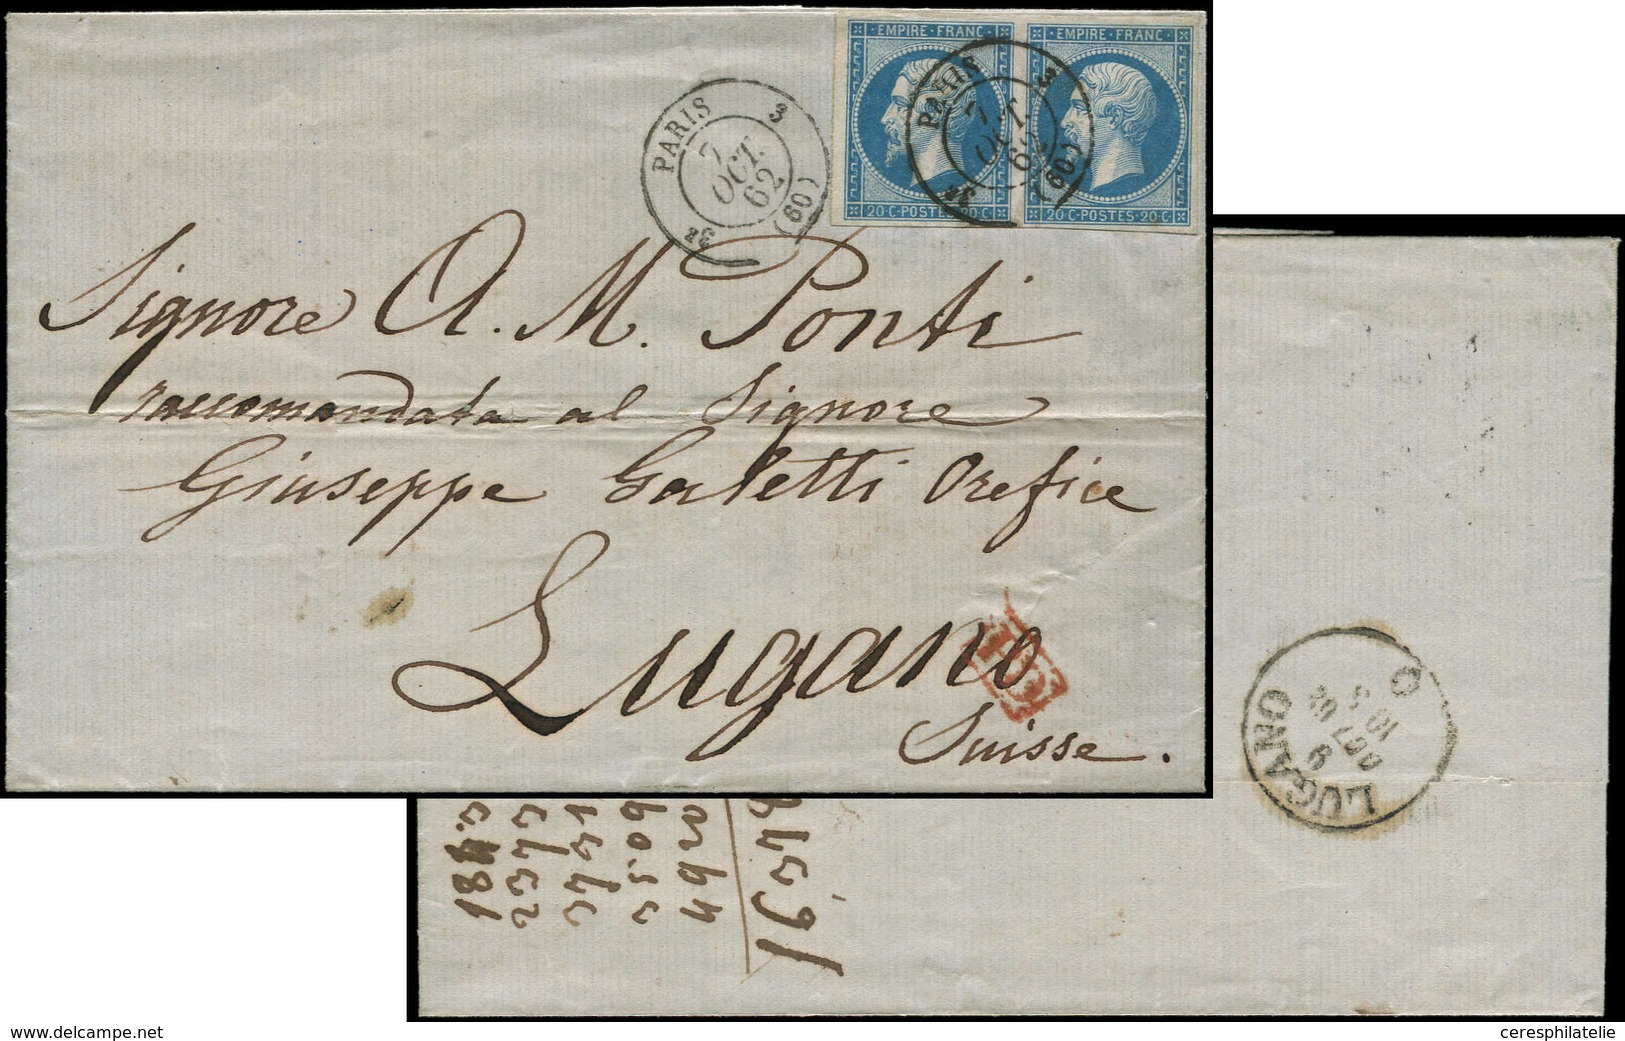 EMPIRE · FRANC
EMPIRE · FRANC
20 C · POSTES · 20 C
20 C · POSTES · 20 C
PARIS 3
7
OCT.
62
3E (60)
PARIS 3
7
OCT.
62
3E (60)
Signore A. M. Ponti
raccomandata al Signore
Giuseppe Galetti Orefice
Lugano
Suisse.
PD
LUGANO
9
OCT 62
10 S
2373
3509
4920
www.delcampe.net
ceresphilatelie